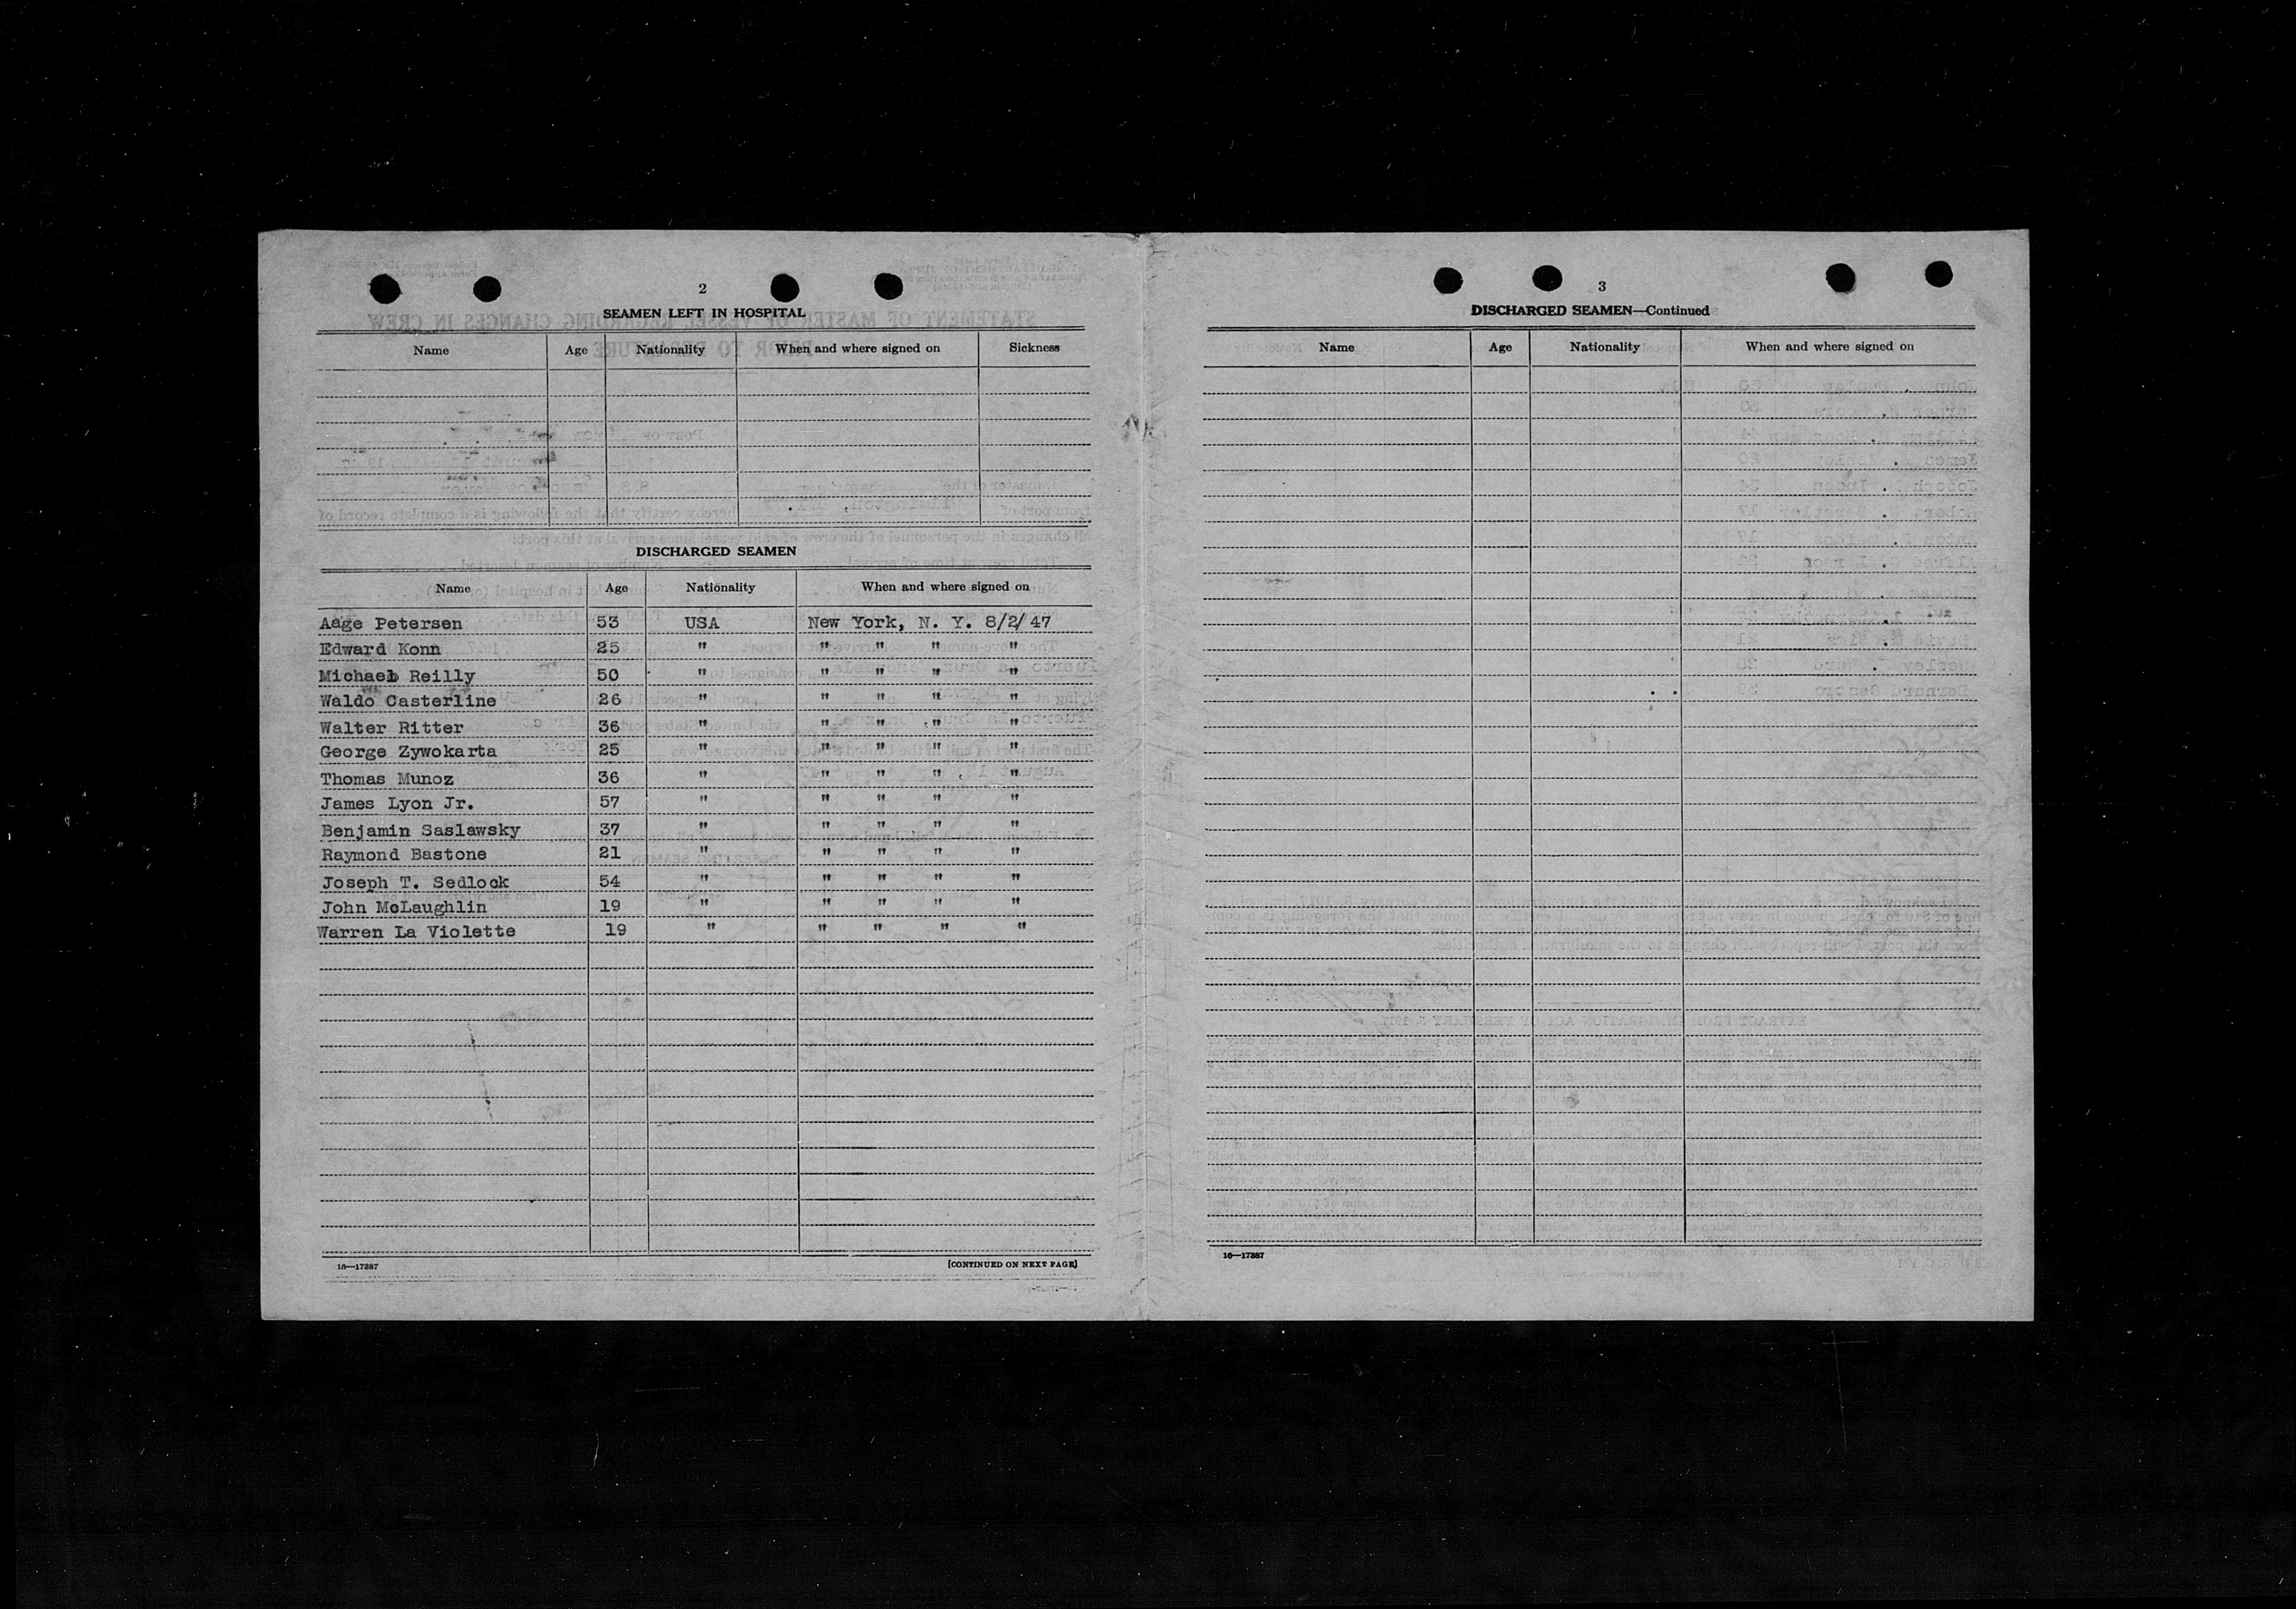 2
SEAMEN LEFT IN HOSPITAL
Name Age Nationality When and where signed on Sickness
DISCHARGED SEAMEN
Name Age Nationality When and where signed on
Aage Petersen 53 USA New York, N. Y. 8/2/47
Edward Konn 25 " " " " "
Michael Reilly 50 " " " " "
Waldo Casterline 26 " " " " "
Walter Ritter 36 " " " " "
George Zywokarta 25 " " " " "
Thomas Munoz 36 " " " " "
James Lyon Jr. 57 " " " " "
Benjamin Saslawsky 37 " " " " "
Raymond Bastone 21 " " " " "
Joseph T. Sedlock 54 " " " " "
John McLaughlin 19 " " " " "
Warren La Violette 19 " " " " "
16—17387 [CONTINUED ON NEXT PAGE]
3
DISCHARGED SEAMEN—Continued
Name Age Nationality When and where signed on
16—17387